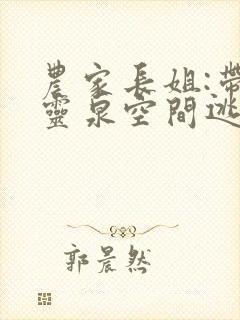 農家長姐:帶
靈泉空間逃
郭晨然